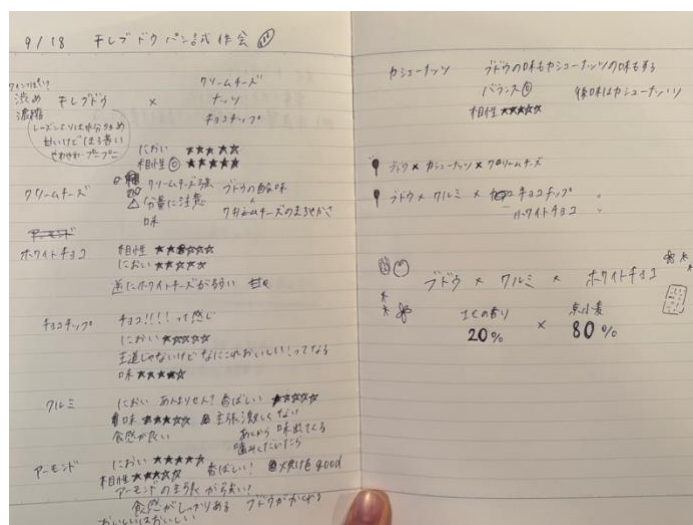 9/18 干しブドウパン試作会
渋め
濃縮
干しブドウ ×
クリームチーズ
ナッツ
チョコチップ
レーズンよりは水分多め
甘いけどほろ苦い
クリームチーズ
におい ★★★☆☆
相性◎ ★★★★★
クリームチーズ強 ブドウの酸味
△分量に注意 クリームチーズのまろやかさ
味
アーモンド
ホワイトチョコ
相性 ★★★☆☆☆
におい ★★☆☆☆
逆にホワイトチーズが弱い
チョコチップ
チョコ!!!!って感じ
におい ★☆☆☆☆
王道じゃないけどなにこれおいしい!ってなる
味 ★★★★☆
クルミ
におい あんまりせん! 香ばしい ★☆☆☆☆
味 ★★★☆☆ 主張激しくない
食感が良い あとから味出てくる
噛みくだいたら
アーモンド
におい ★★★★☆
相性 ★★★☆☆ 香ばしい! 焼け色good
アーモンドの主張が強い!
食感がしっかりある ブドウがかくれる
おいしいはおいしい
カシューナッツ ブドウの味もカシューナッツの味もする
バランス◎ 後味はカシューナッツ
相性 ★★★☆☆
ブドウ×カシューナッツ×クリームチーズ
ブドウ×クルミ×チョコチップ
ホワイトチョコ
ブドウ × クルミ × ホワイトチョコ
20% × 80%